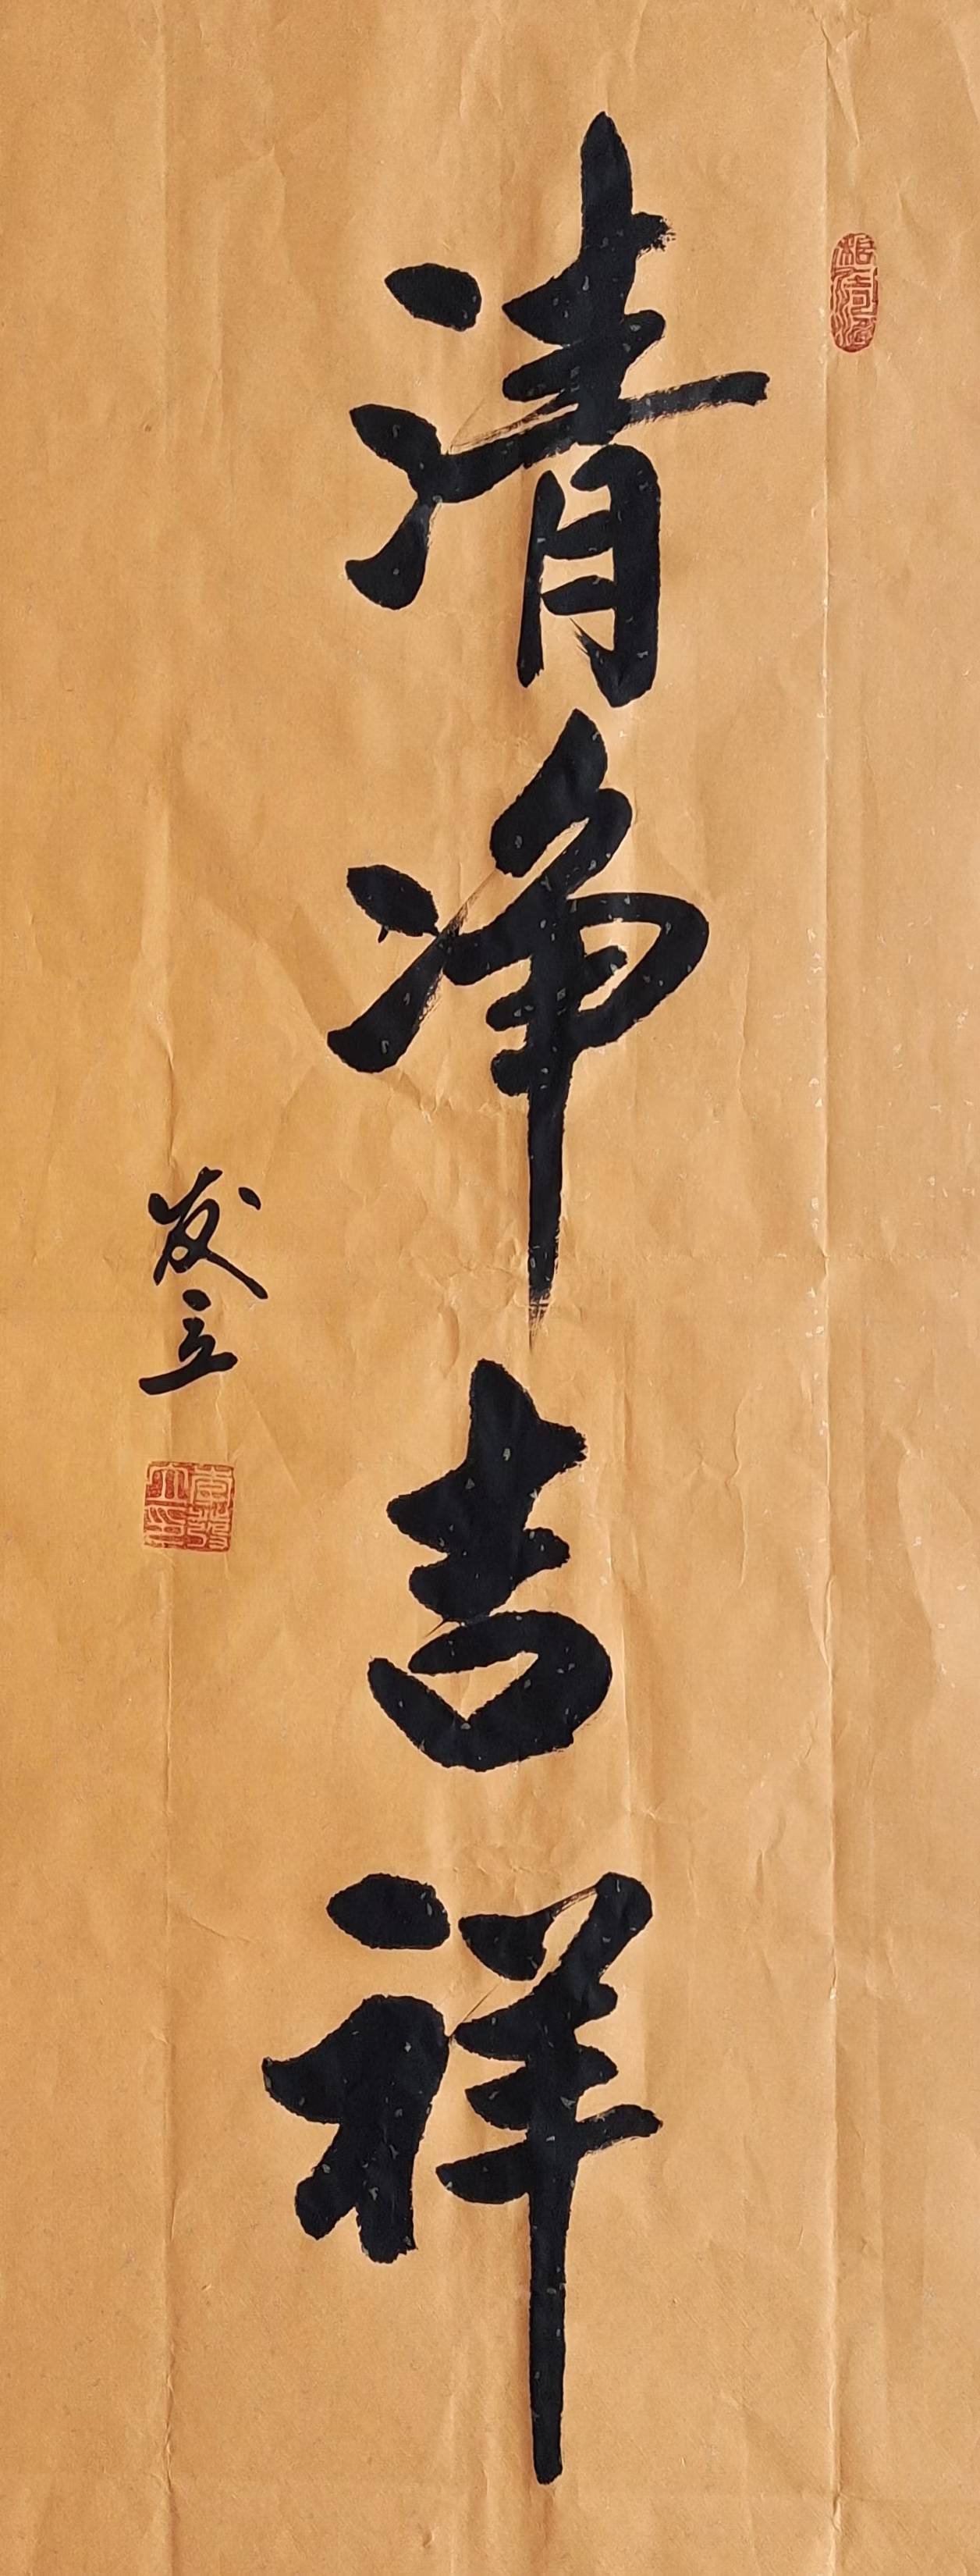 清净吉祥
发立